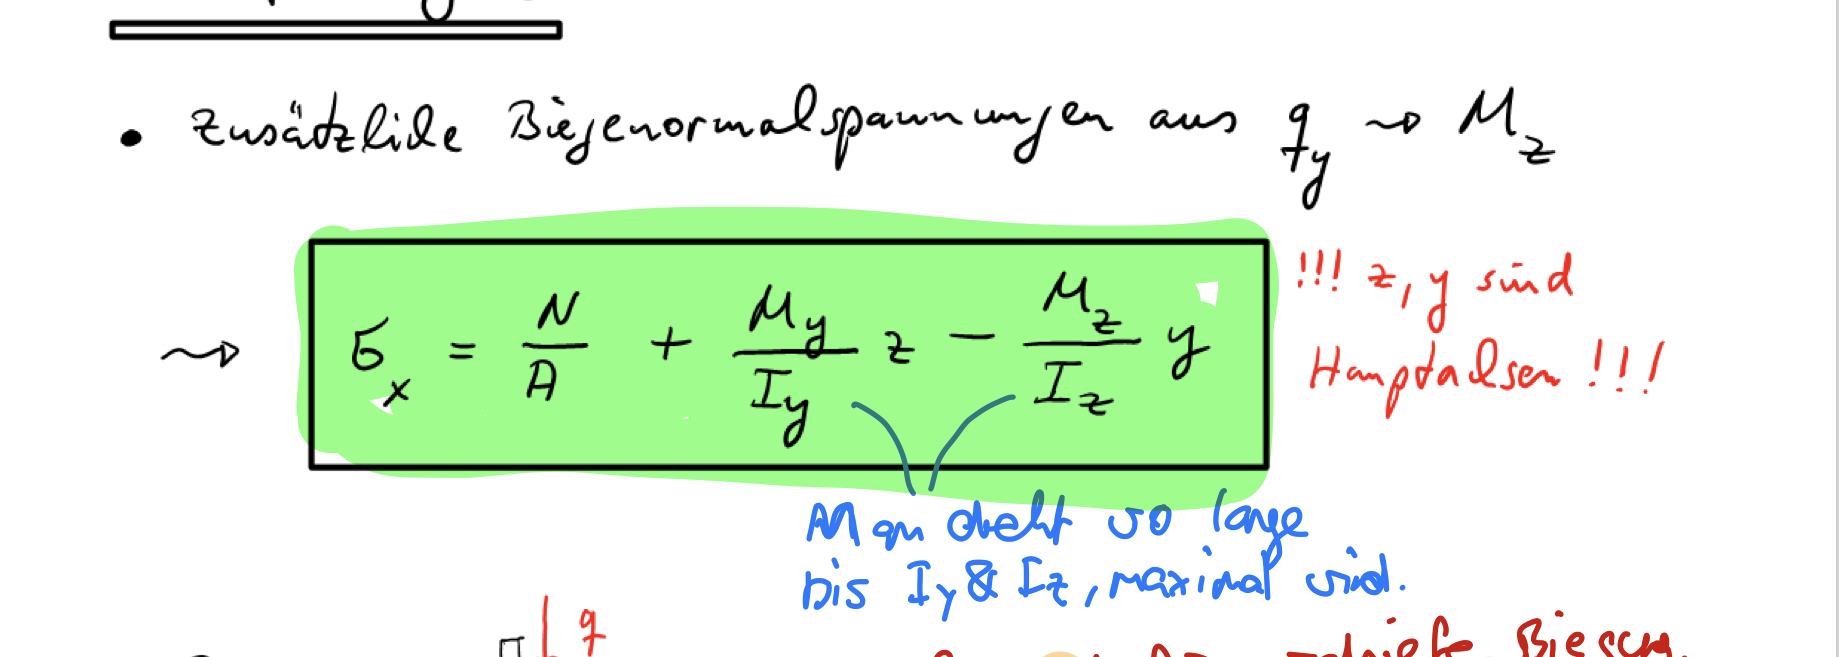 • Zusätzliche Biegenormalspannungen aus q_y ⇝ M_z
⇝ σ_x = N/A + M_y/I_y z − M_z/I_z y
!!! z, y sind
Hauptachsen !!!
Man dreht so lange
bis I_y & I_z, maximal wird.
q
schiefe Biegung